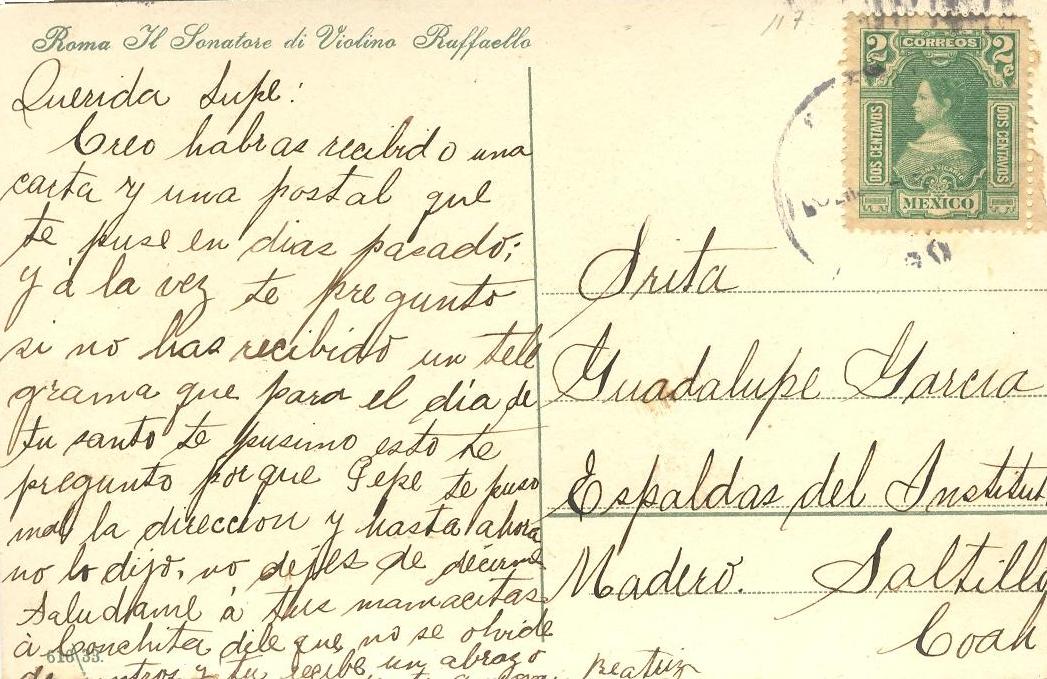 Roma Il Sonatore di Violino Raffaello
117
Querida Lupe:
Creo habras recibido una
carta y una postal que
te puse en dias pasado;
y á la vez te pregunto
si no has recibido un tele
grama que para el día de
tu santo te pusimo esto te
pregunto porque Pepe te puso
mal la direccion y hasta ahora
no lo dijo, no dejes de décirme
Saludame á tus mamacitas
á Conchita dile que no se olvide
de nosotros y tu recibe un abrazo
Beatriz
618/33.
2c CORREOS 2c
DOS CENTAVOS
DOS CENTAVOS
MEXICO
Srita
Guadalupe Garcia
Espaldas del Institut
Madero. Saltillo
Coah